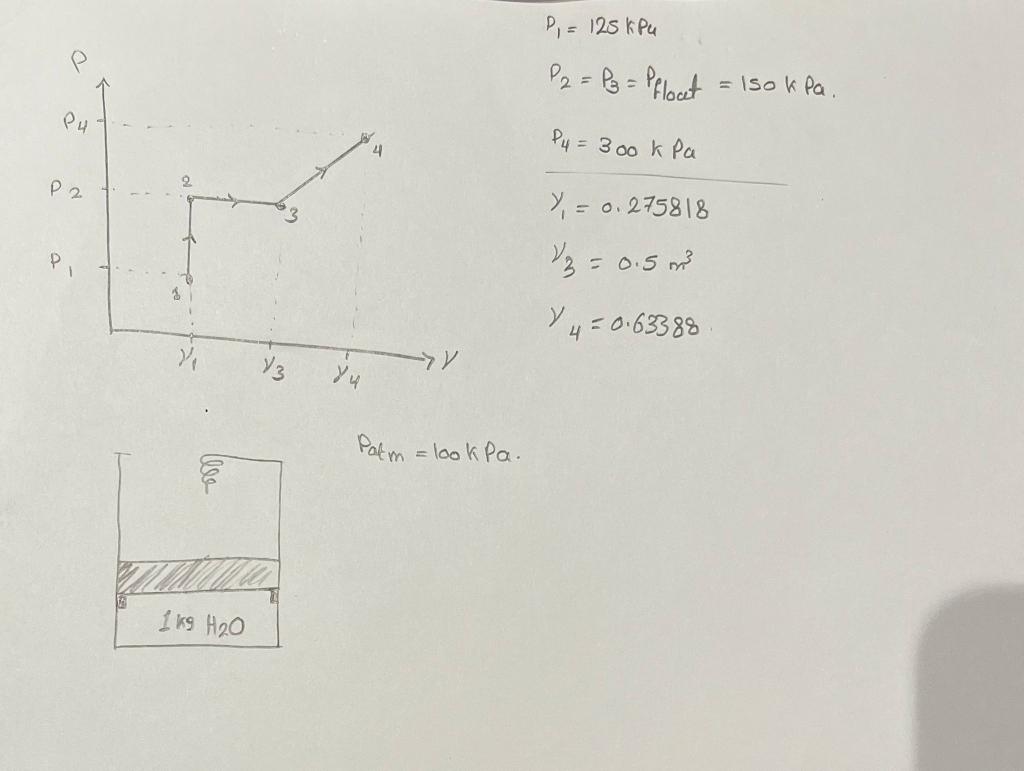 P
P4
P2
P1
2
3
4
1
V1
V3
V4
V
P1 = 125 kPa
P2 = P3 = Pfloat = 150 kPa.
P4 = 300 kPa
V1 = 0.275818
V3 = 0.5 m³
V4 = 0.63388
Patm = 100 kPa.
1 kg H2O